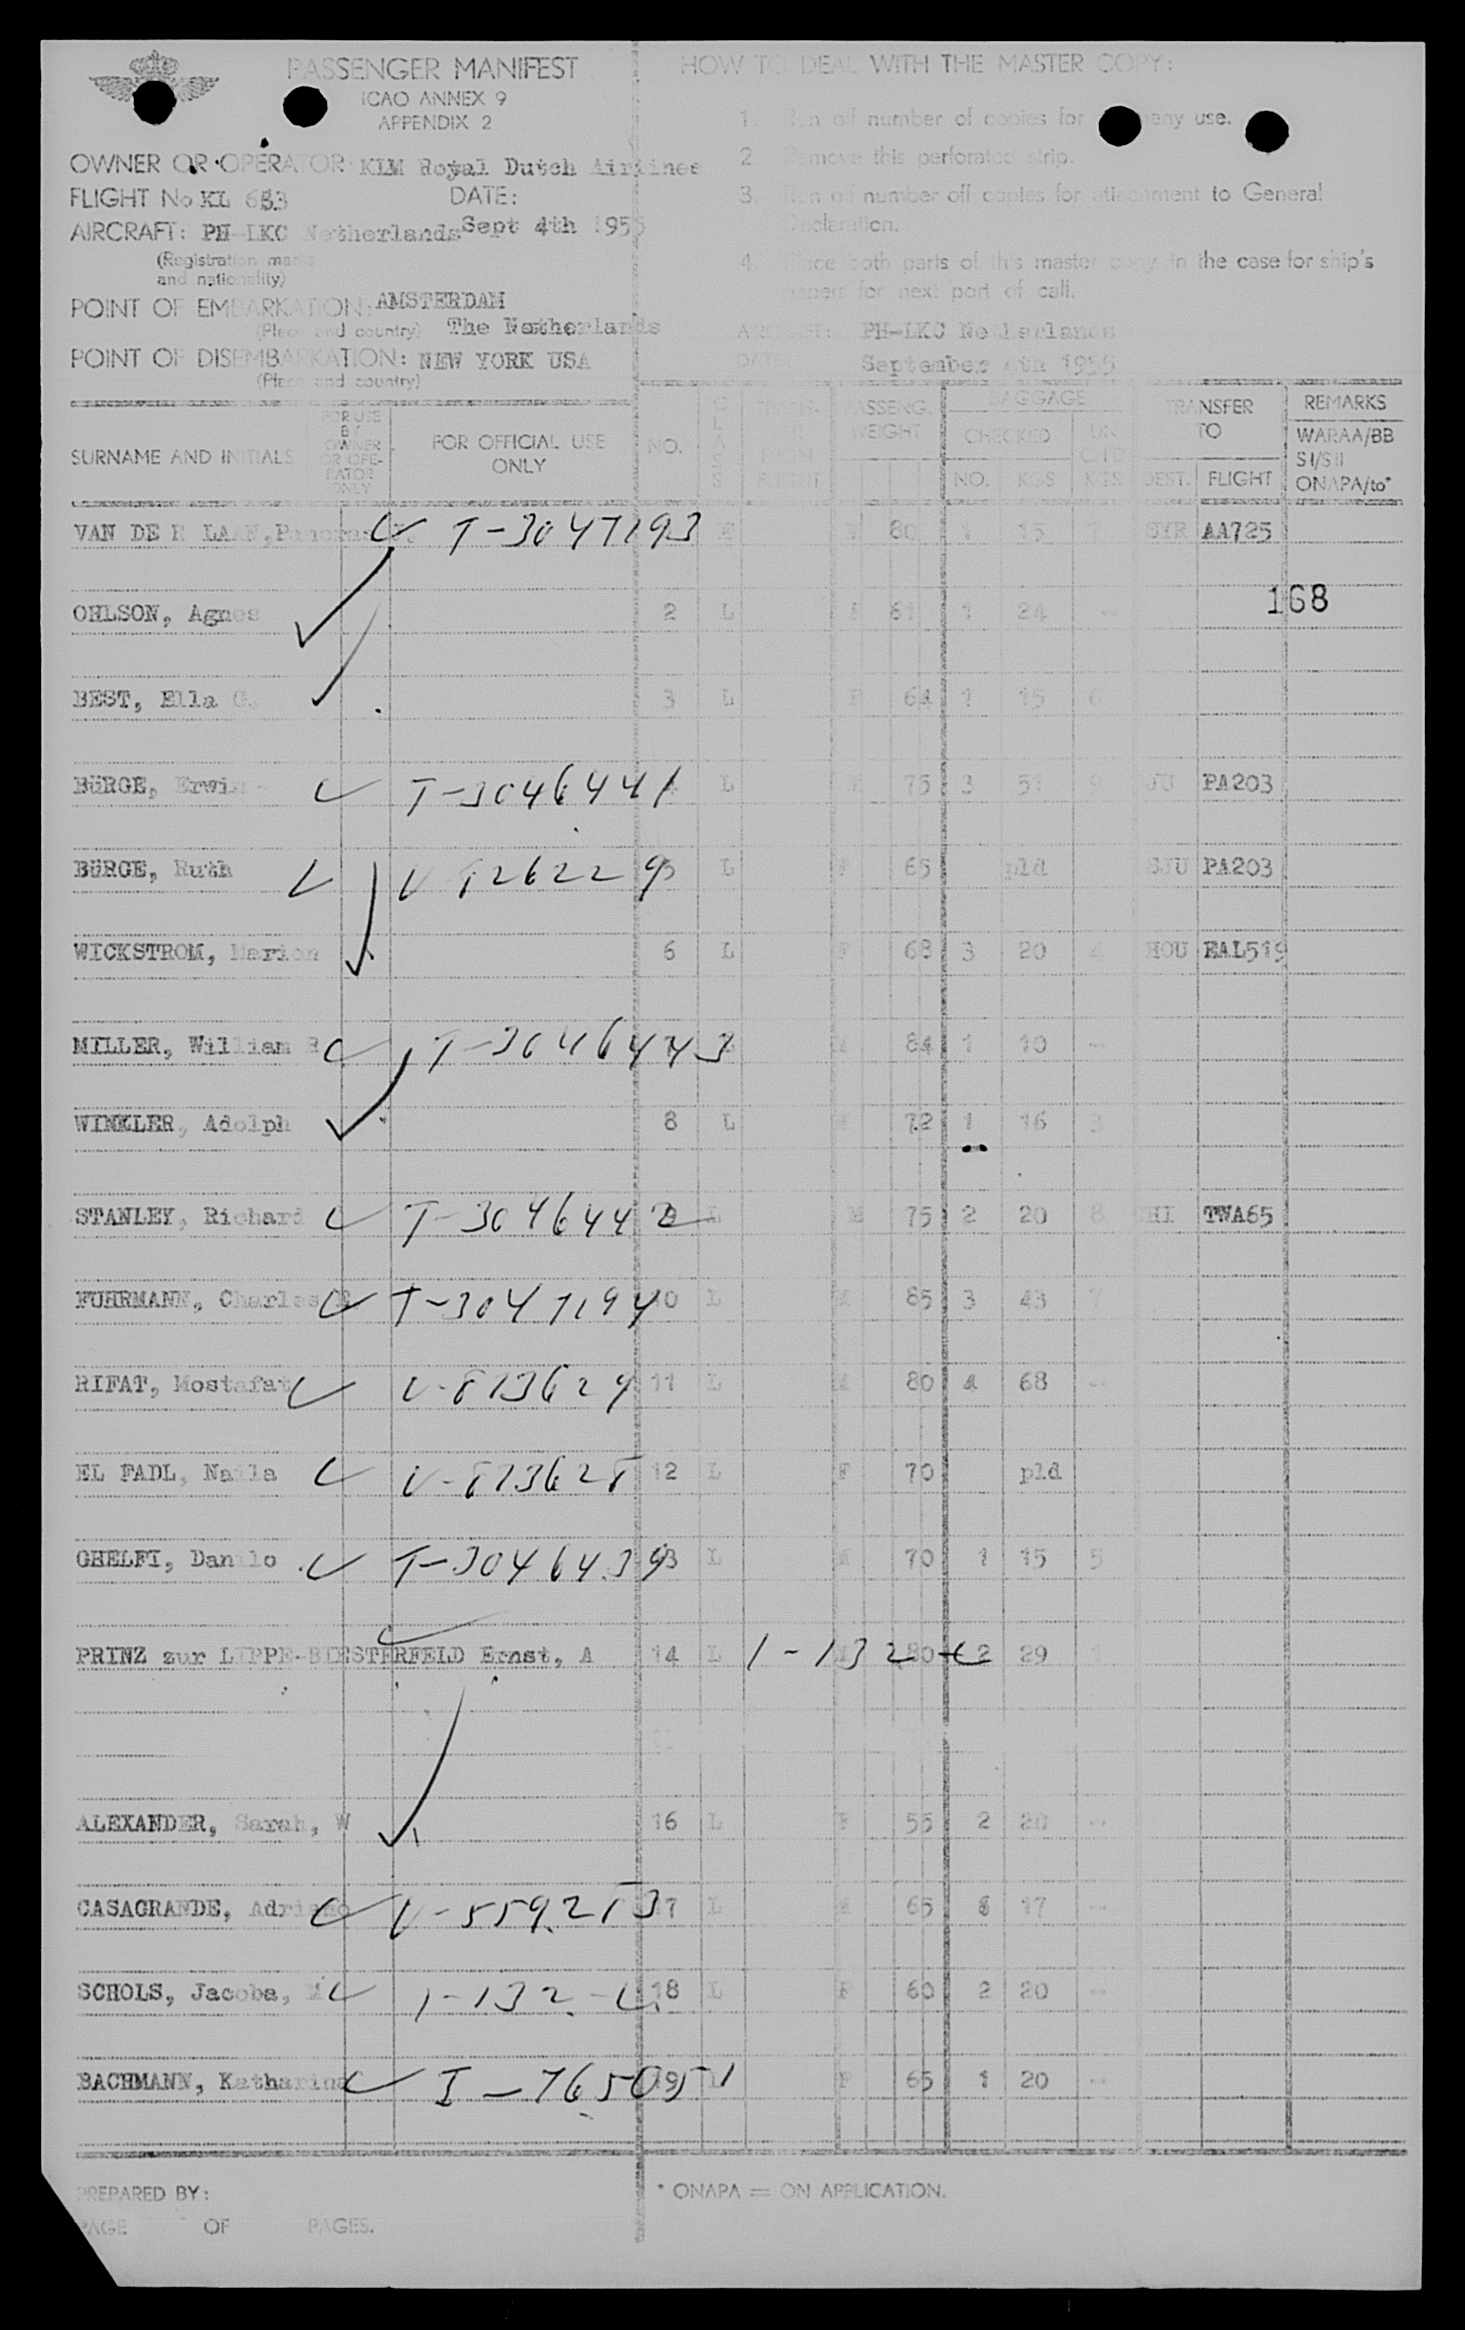 PASSENGER MANIFEST
ICAO ANNEX 9
APPENDIX 2
OWNER OR OPERATOR: KLM Royal Dutch Airlines
FLIGHT No KL 683 DATE:
AIRCRAFT: PH-LKC Netherlands Sept 4th 1955
(Registration marks
and nationality)
POINT OF EMBARKATION: AMSTERDAM
(Place and country) The Netherlands
POINT OF DISEMBARKATION: NEW YORK USA
(Place and country)
HOW TO DEAL WITH THE MASTER COPY:
1. Run off number of copies for company use.
2. Remove this perforated strip.
3. Run off number off copies for attachment to General
Declaration.
4. Place both parts of this master copy in the case for ship's
papers for next port of call.
AIRCRAFT: PH-LKC Netherlands
DATE: September 4th 1955
SURNAME AND INITIALS FOR USE BY OWNER OR OPERATOR ONLY FOR OFFICIAL USE ONLY NO. CLASS PASSENG. WEIGHT BAGGAGE CHECKED NO. KGS KGS TRANSFER TO DEST. FLIGHT REMARKS WARAA/BB SI/SII ONAPA/to*
VAN DE R LAAN, T-3047193 80 1 15 SYR AA725
168
OHLSON, Agnes 2 L F 61 1 24 --
BEST, Ella C. 3 L F 64 1 15 6
BüRGE, Erwin T-3046441 L M 75 3 51 9 SJU PA203
BüRGE, Ruth 5 L F 65 pld SJU PA203
WICKSTROM, Marion 6 L F 68 3 20 4 HOU EAL519
MILLER, William R T-3046443 L M 84 1 10 --
WINKLER, Adolph 8 L M 72 1 16 3
STANLEY, Richard T-3046442 L M 75 2 20 8 CHI TWA65
FUHRMANN, Charles T-3047194 10 L M 85 3 43 7
RIFAT, Mostafa V-813624 11 L M 80 4 68 --
EL FADL, Naila V-813625 12 L F 70 pld
GHELFI, Danilo T-3046439 13 L M 70 1 15 5
PRINZ zur LIPPE-BIESTERFELD Ernst, A 14 L 1-132-C 80 2 29
ALEXANDER, Sarah, W 16 L F 55 2 20 --
CASAGRANDE, Adriano V-559253 17 L M 65 17 --
SCHOLS, Jacoba, M 1-132-C 18 L F 60 2 20 --
BACHMANN, Katharina I-765051 19 L F 65 1 20 --
PREPARED BY:
PAGE OF PAGES.
* ONAPA = ON APPLICATION.